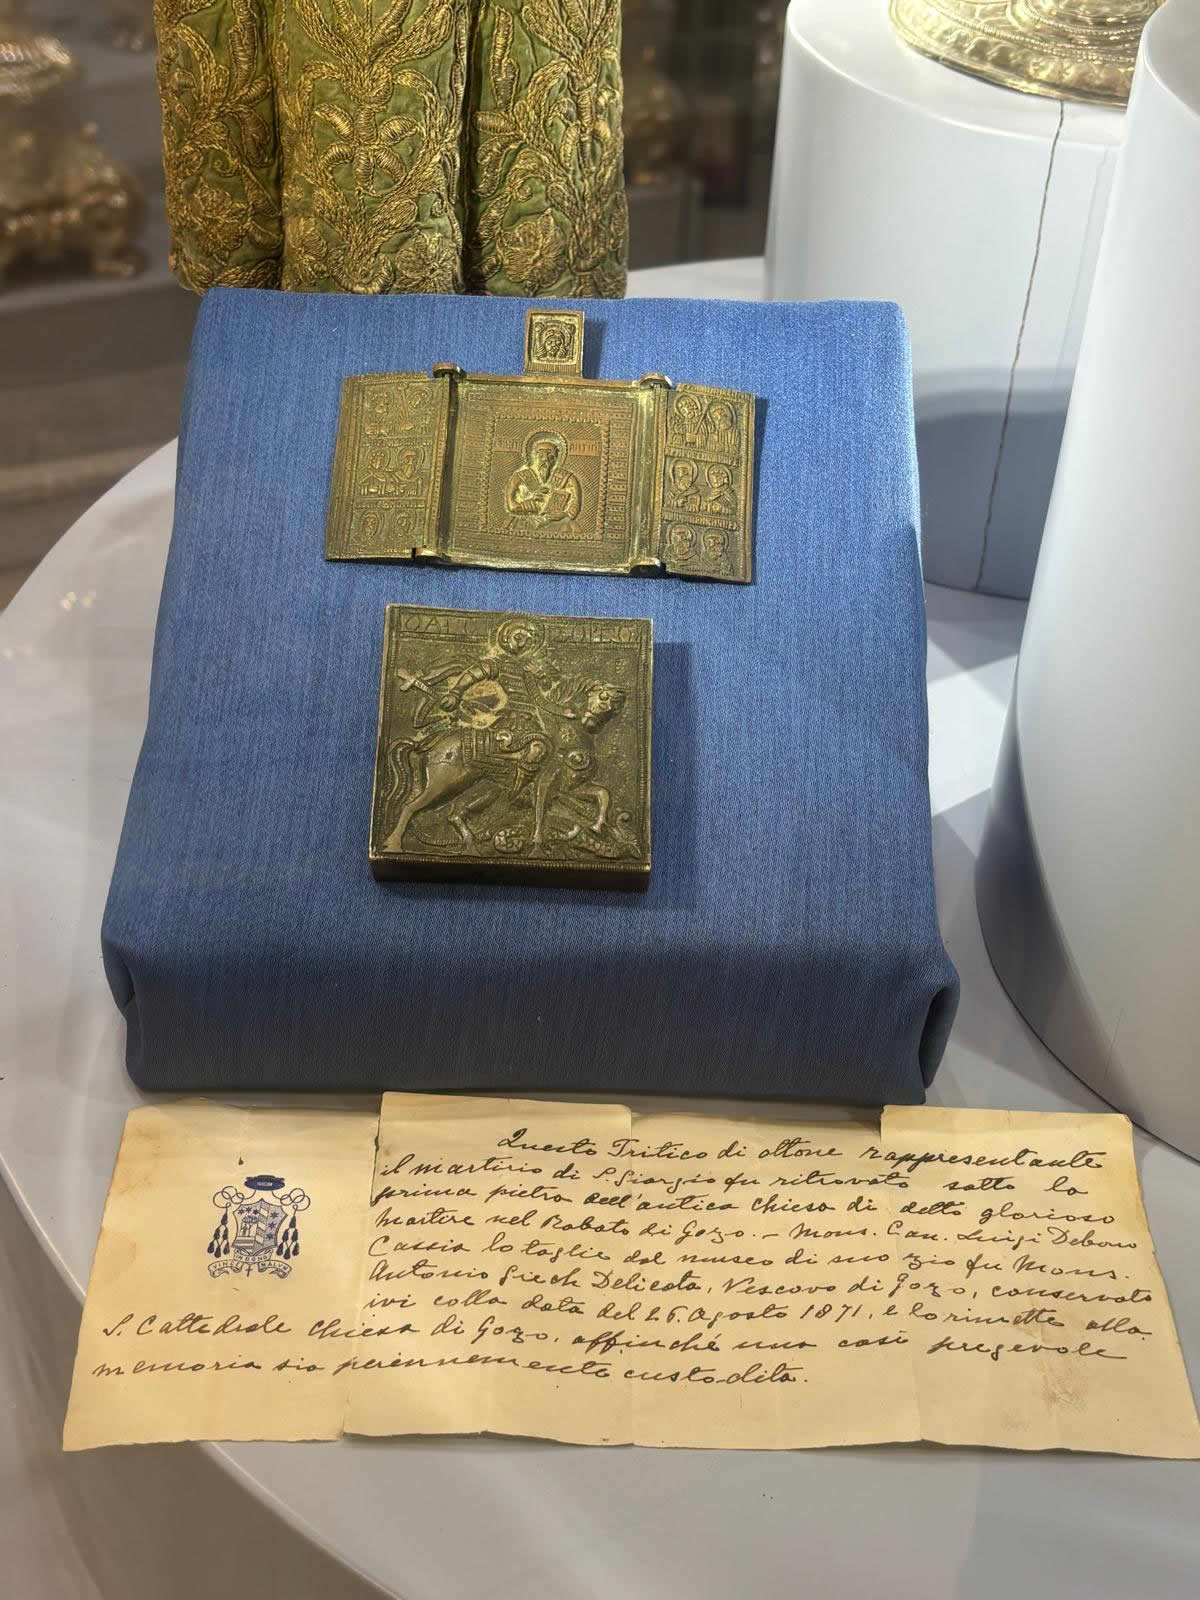 Questo Tritico di ottone rappresentante
il martirio di S. Giorgio fu ritrovato sotto la
prima pietra dell'antica chiesa di detto glorioso
martire nel Rabato di Gozo. - Mons. Can. Luigi Debono
Cassia lo toglie dal museo di suo zio fu Mons.
Antonio Grech Delicata, Vescovo di Gozo, conservato
ivi colla data del 26. Agosto 1871, e lo rimette alla
S. Cattedrale Chiesa di Gozo, affinché una così pregevole
memoria sia perennemente custodita.
VINCE IN BONO MALUM